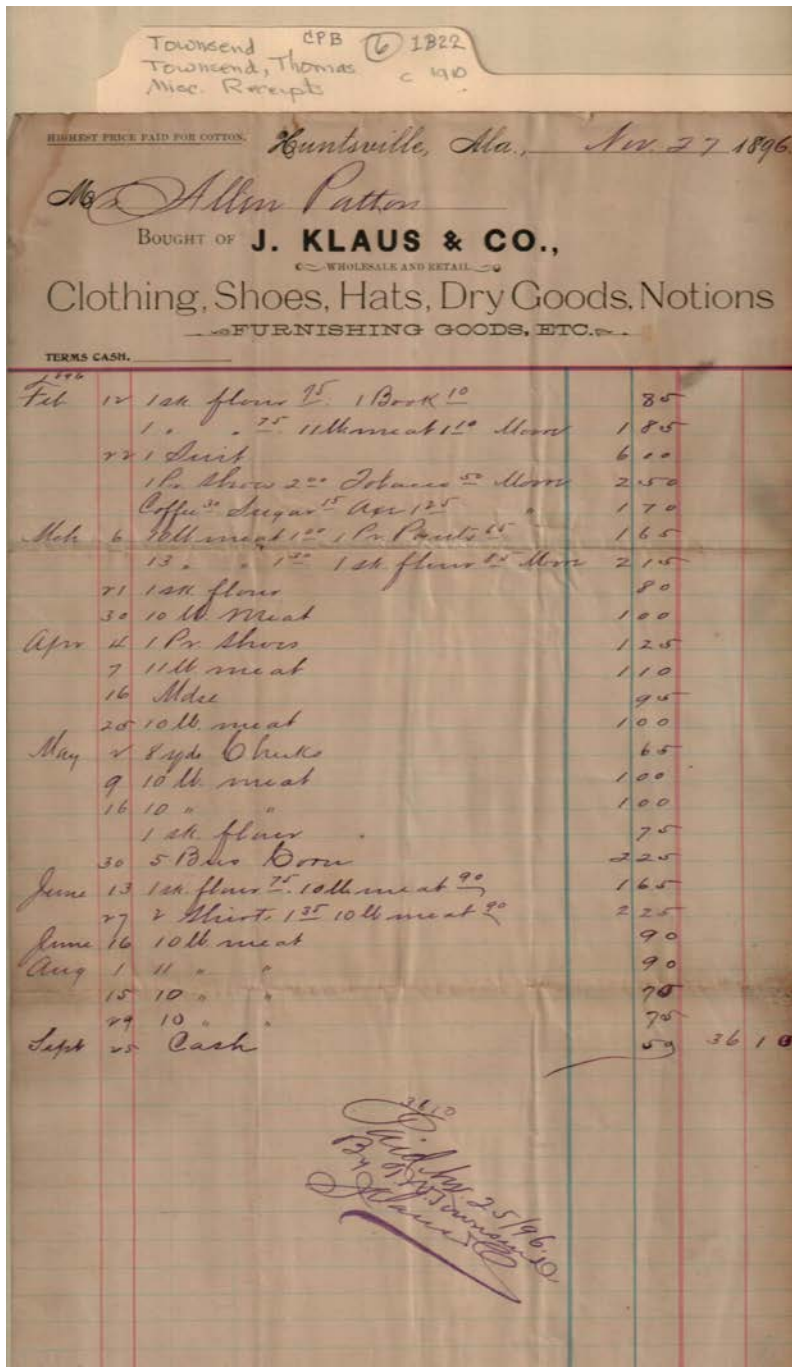 Townsend CPB 6 1822
Townsend, Thomas
Misc. Receipts c 1910
HIGHEST PRICE PAID FOR COTTON.
Huntsville, Ala., Nov. 27 1896.
M Allen Patton
BOUGHT OF J. KLAUS & CO.,
WHOLESALE AND RETAIL
Clothing, Shoes, Hats, Dry Goods, Notions
FURNISHING GOODS, ETC.
TERMS CASH.
1896
Feb 12 1 sk flour 1 Book 10 85
1 " " 75 11 lb meat 1 10 1 85
22 1 Suit 6 00
1 Pr Shoes 2 00 Tobacco 50 2 50
Coffee 30 Sugar 15 Axe 1 25 " 1 70
Mch 6 10 lb meat 1 00 1 Pr. Pants 65 1 65
13 " " 1 30 1 sk flour 85 2 15
21 1 sk flour 80
30 10 lb meat 1 00
Apr 4 1 Pr. Shoes 1 25
7 11 lb meat 1 10
16 Mdse 95
25 10 lb. meat 1 00
May 2 8 yds Checks 65
9 10 lb. meat 1 00
16 10 " " 1 00
1 sk. flour 75
30 5 Bus Corn 2 25
June 13 1 sk. flour 75 10 lb meat 90 1 65
27 2 Shirts 1 35 10 lb meat 90 2 25
June 16 10 lb meat 90
Aug 1 11 " " 90
15 10 " " 75
29 10 " " 75
Sept 25 Cash 59 36 10
36 10
Paid 25/96
By Townsend
J Klaus & Co